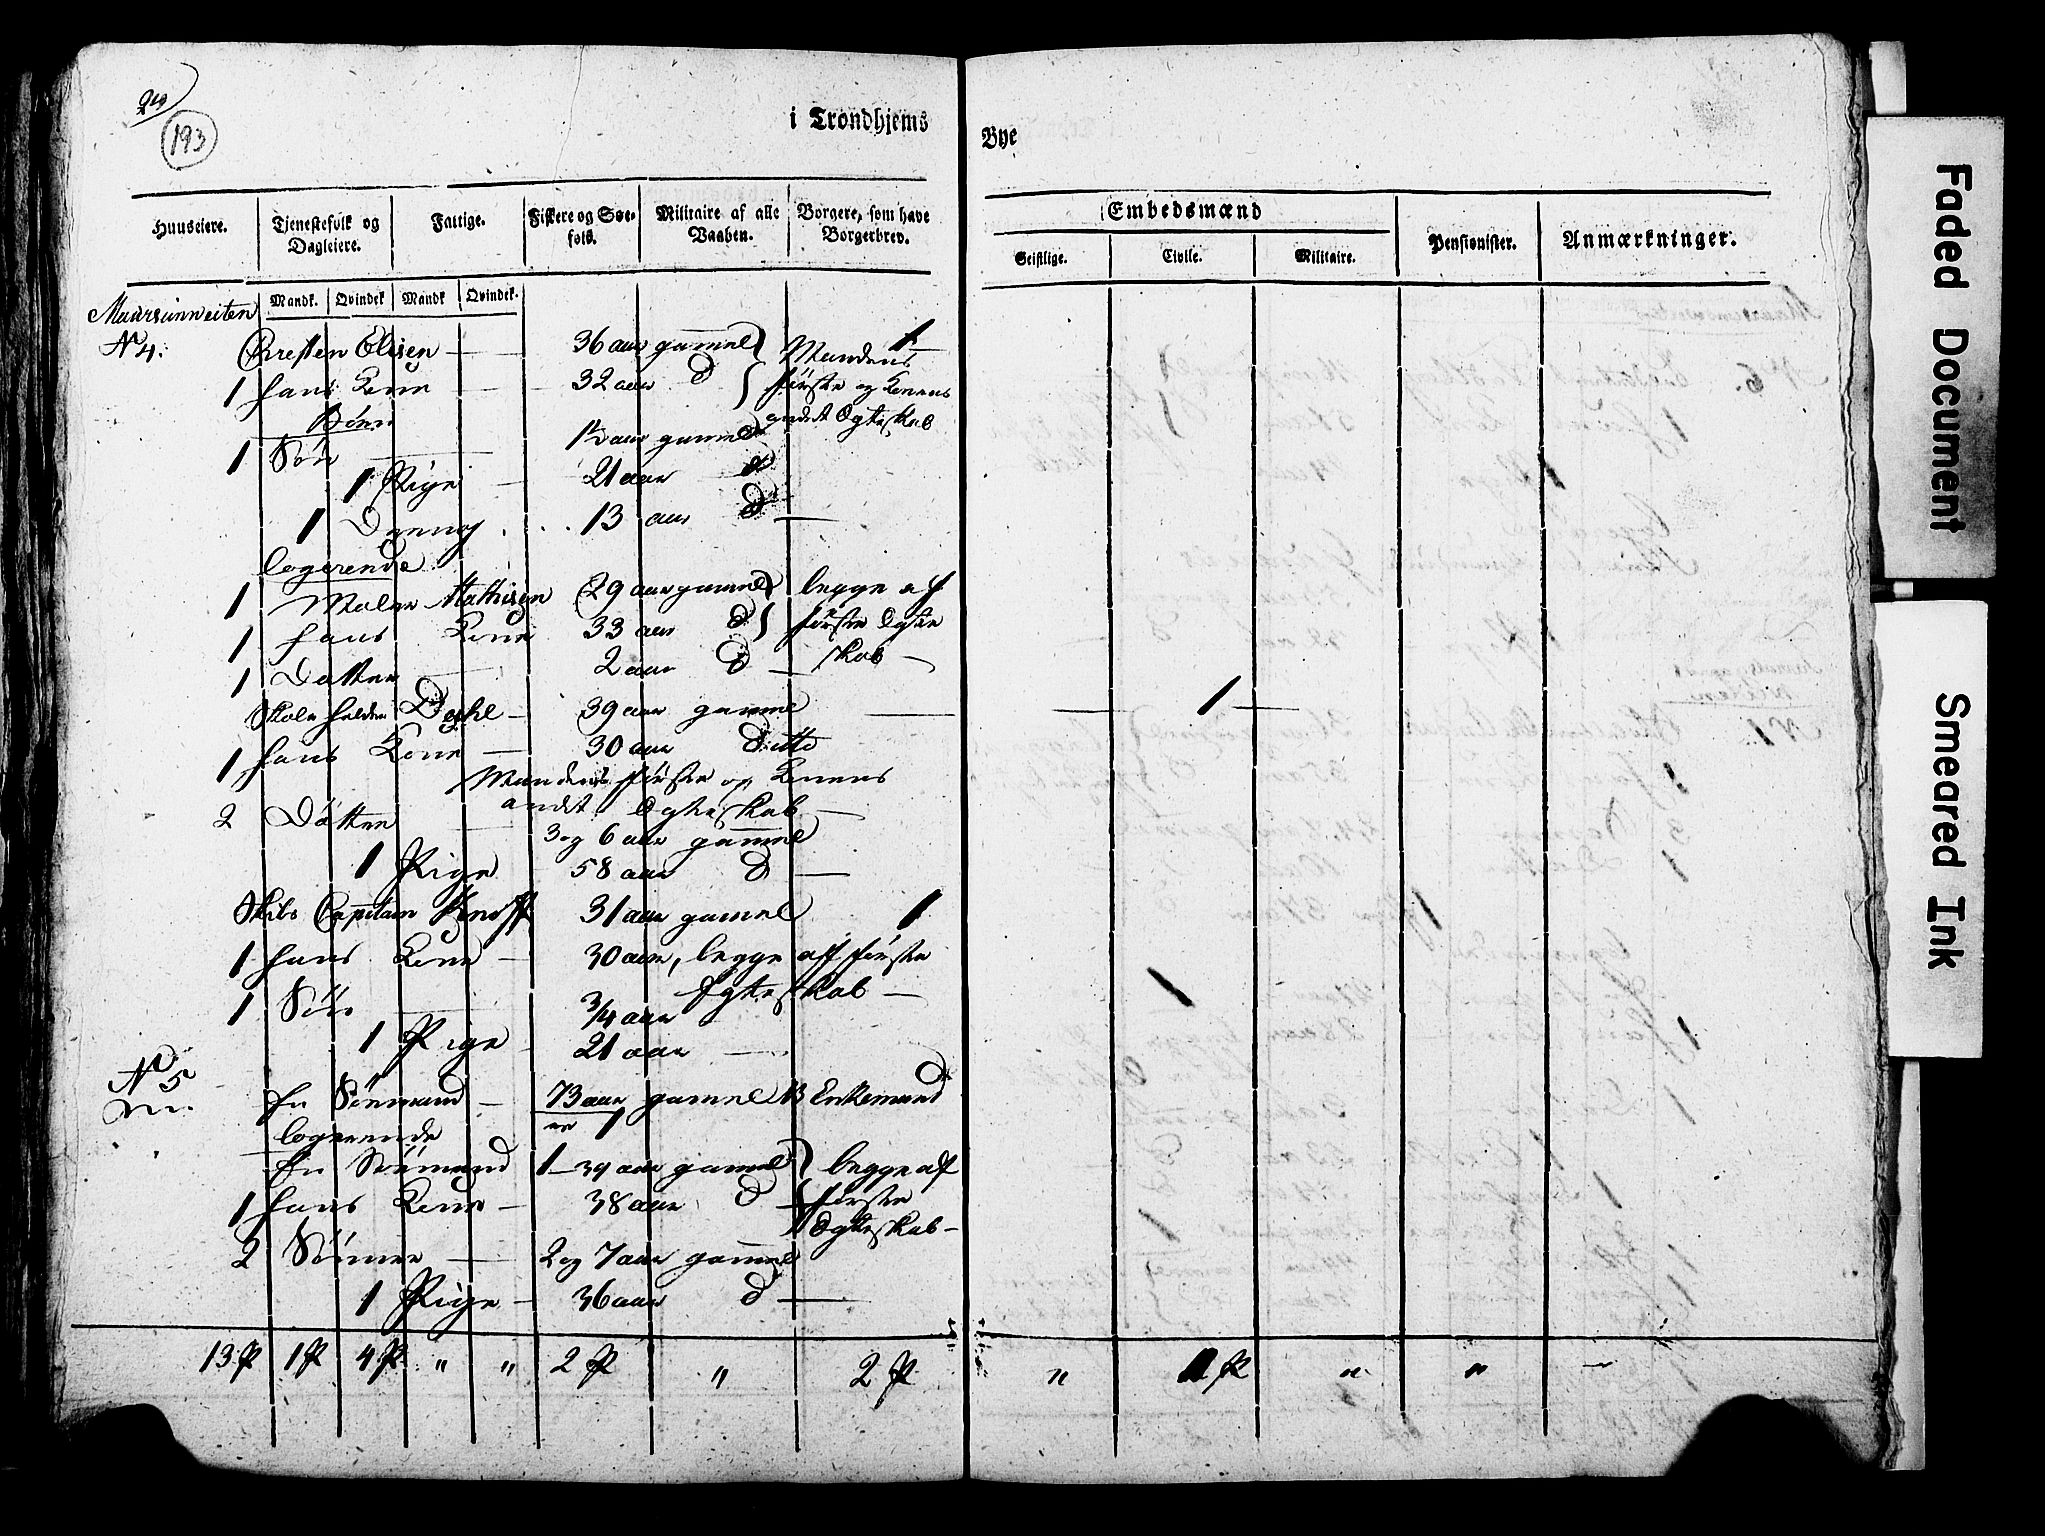 193
i Trondhjems
Bye
Huuseiere.
Tjenestefolk og Dagleiere.
Fattige.
Fiskere og Søefolk.
Militaire af alle Vaaben.
Borgere, som have Borgerbrev.
Embedsmænd
Geistlige.
Civile.
Militaire.
Pensionister.
Anmærkninger.
Mandk. Qvindek Mandk Qvindek.
N 4.
Chresten Elisen 36 aar gammel 1
1 hans Kone 32 aar d Mandens første og Konens andet Egteskab
Børn
1 Søn 1½ aar gammel
1 Pige 21 aar d
1 Dreng 13 aar d
logerende
1 Maler Mathisen 29 aar gammel begge af
1 hans Kone 33 aar d første Egte
1 Datter 2 aar d skab
Skoleholder Dahl 39 aar gammel 1
1 hans Kone 30 aar ditto
Mandens første og Konens
andet Egteskab
2 Døttre
3 og 6 aar gammel
1 Pige 58 aar d
Skibs Capitain Knoff 31 aar gamel 1
1 hans Kone 30 aar, begge af første
Egteskab
1 Søn 3/4 aar
1 Pige 21 aar
N 5
en Sømand 73 aar gammel Enkemand
1
logerende
en Sømand 1 39 aar gammel begge af
1 hans Kone 38 aar d første
Egteskab
2 Sønner 2 og 7 aar gammel
1 Pige 36 aar d
13 P 1 P 4 P " " 2 P " 2 P " 1 P " "
Faded Document
Smeared Ink